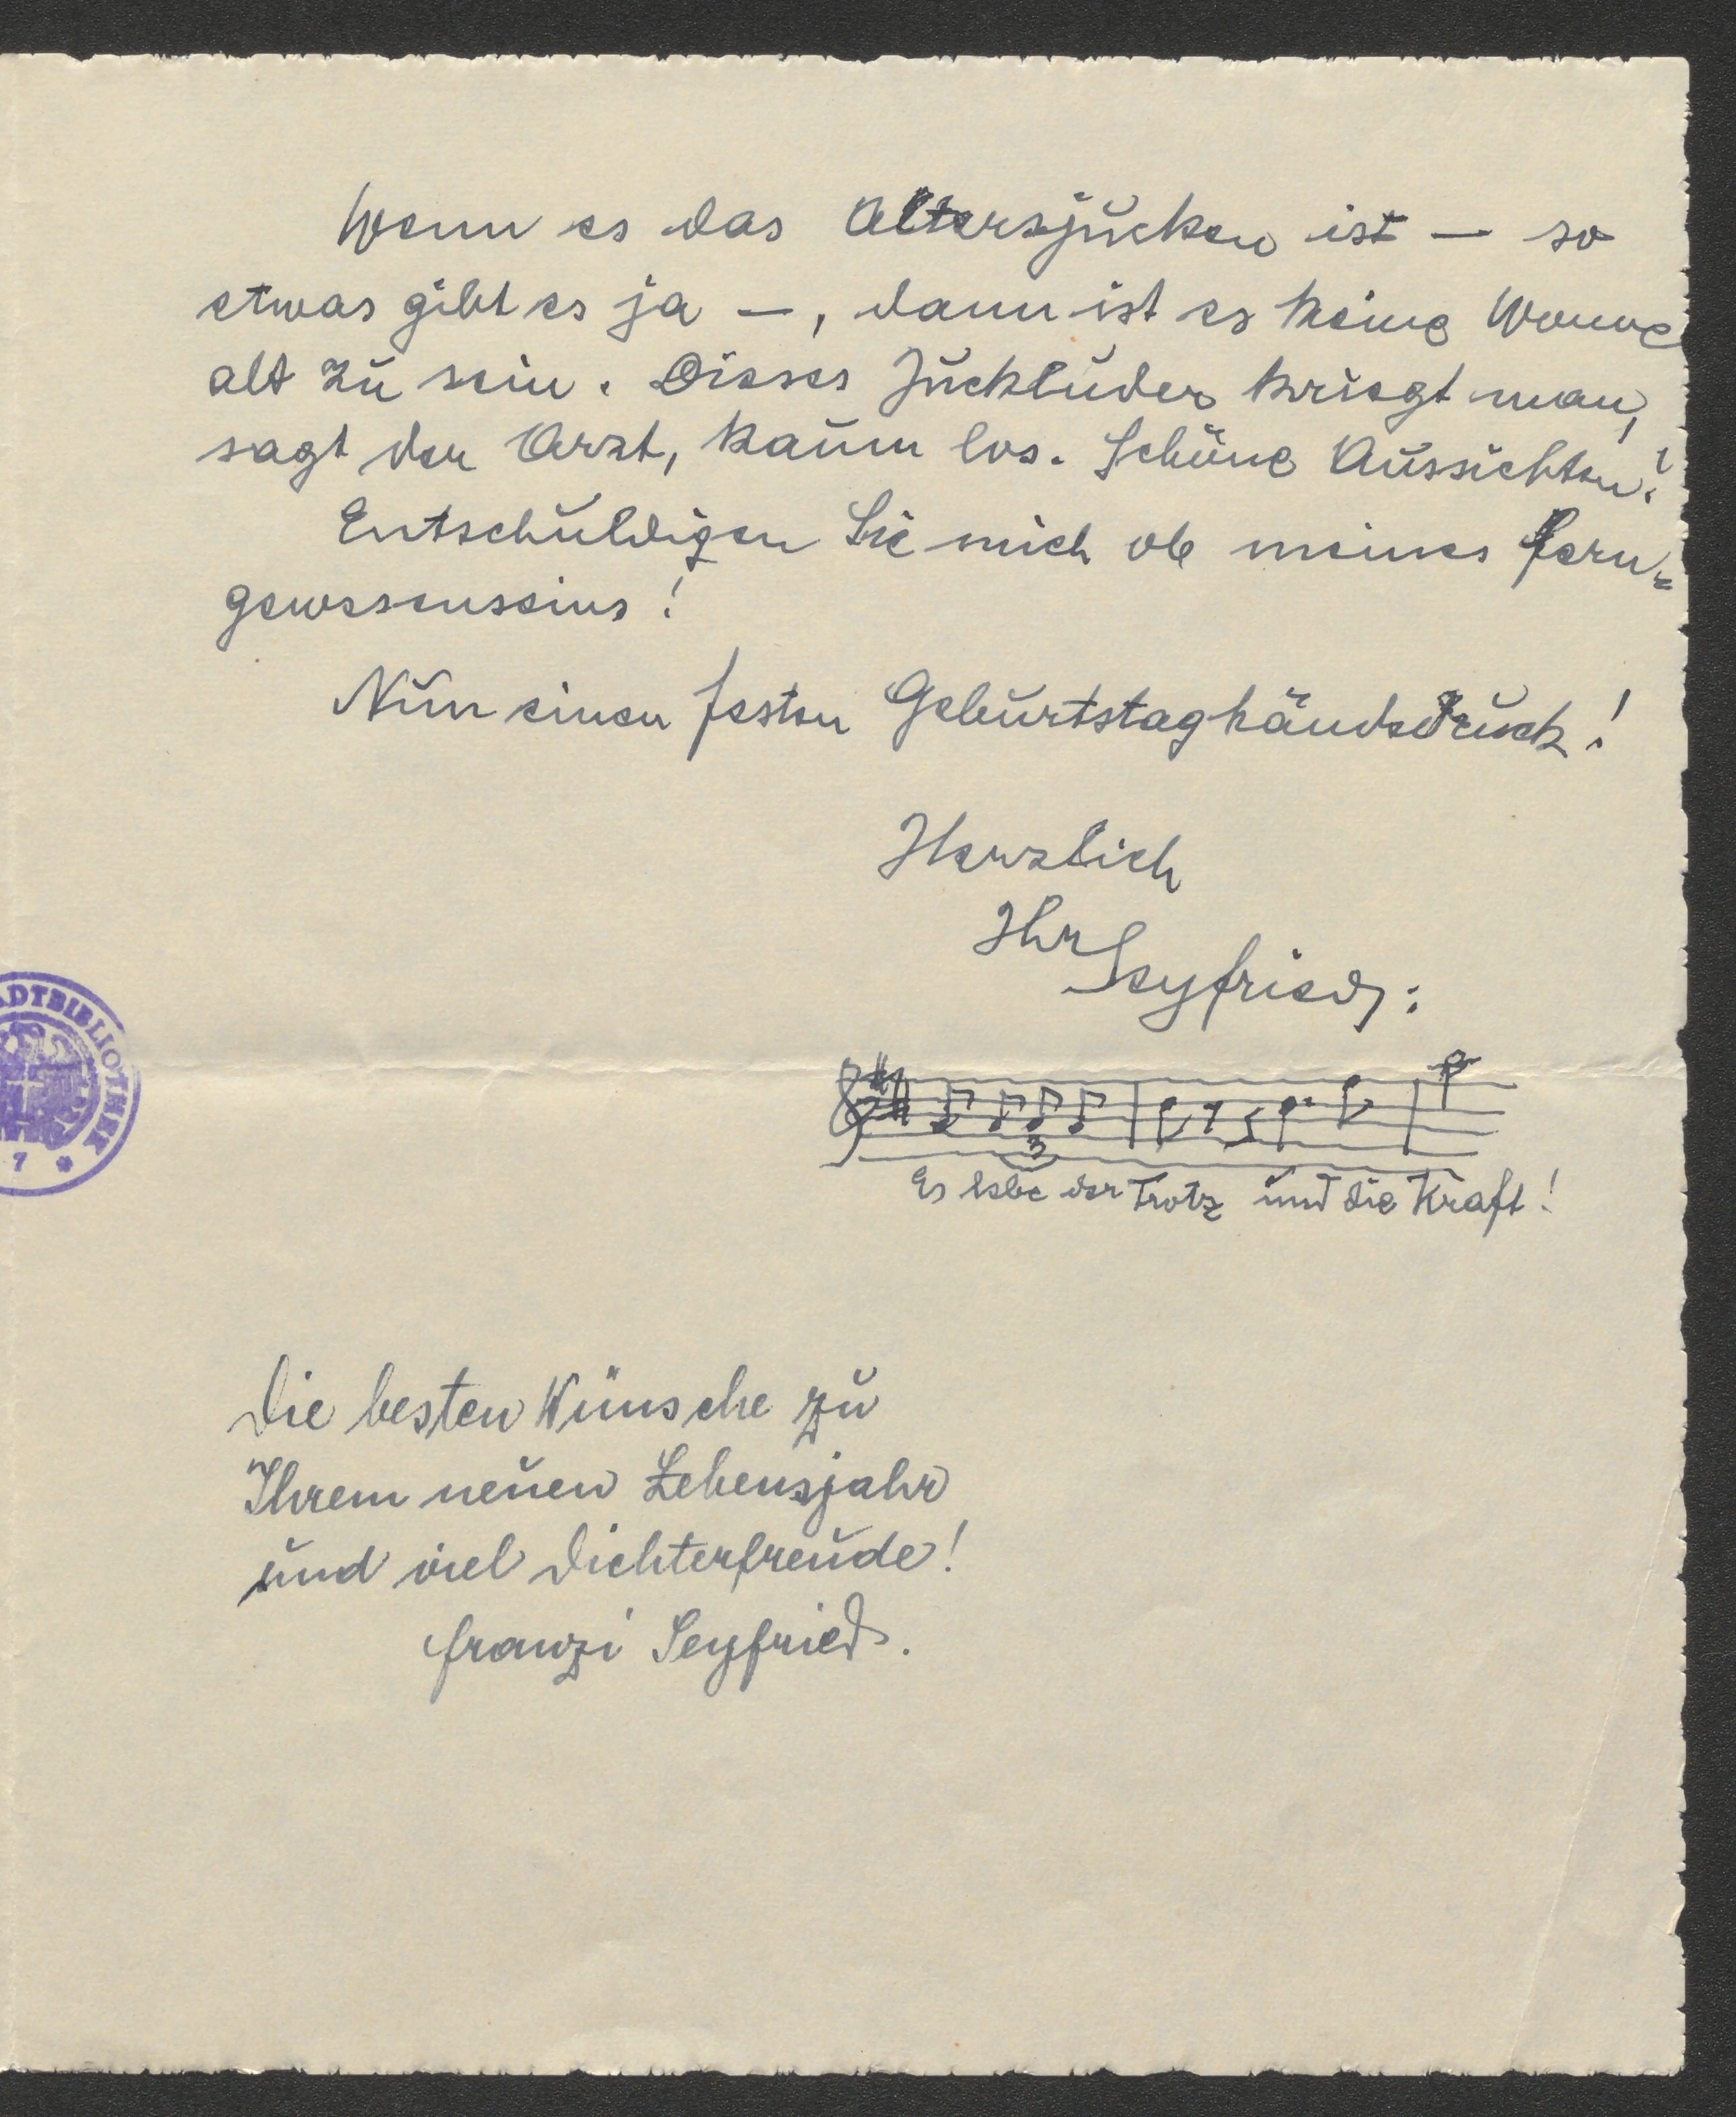 Wenn es das Altersjucken ist — so
etwas gibt es ja —, dann ist es keine Wonne
alt zu sein. Dieses Juckluder kriegt man,
sagt der Arzt, kaum los. Schöne Aussichten!
Entschuldigen Sie mich ob meines Fern-
gewesenseins!
Nun einen festen Geburtstaghändedruck!
Herzlich
Ihr
Seyfried:
3
Es lebe der Trotz und die Kraft!
ADTBIBLIOTHEK
7 *
Die besten Wünsche zu
Ihrem neuen Lebensjahr
und viel Dichterfreude!
Franzi Seyfried.